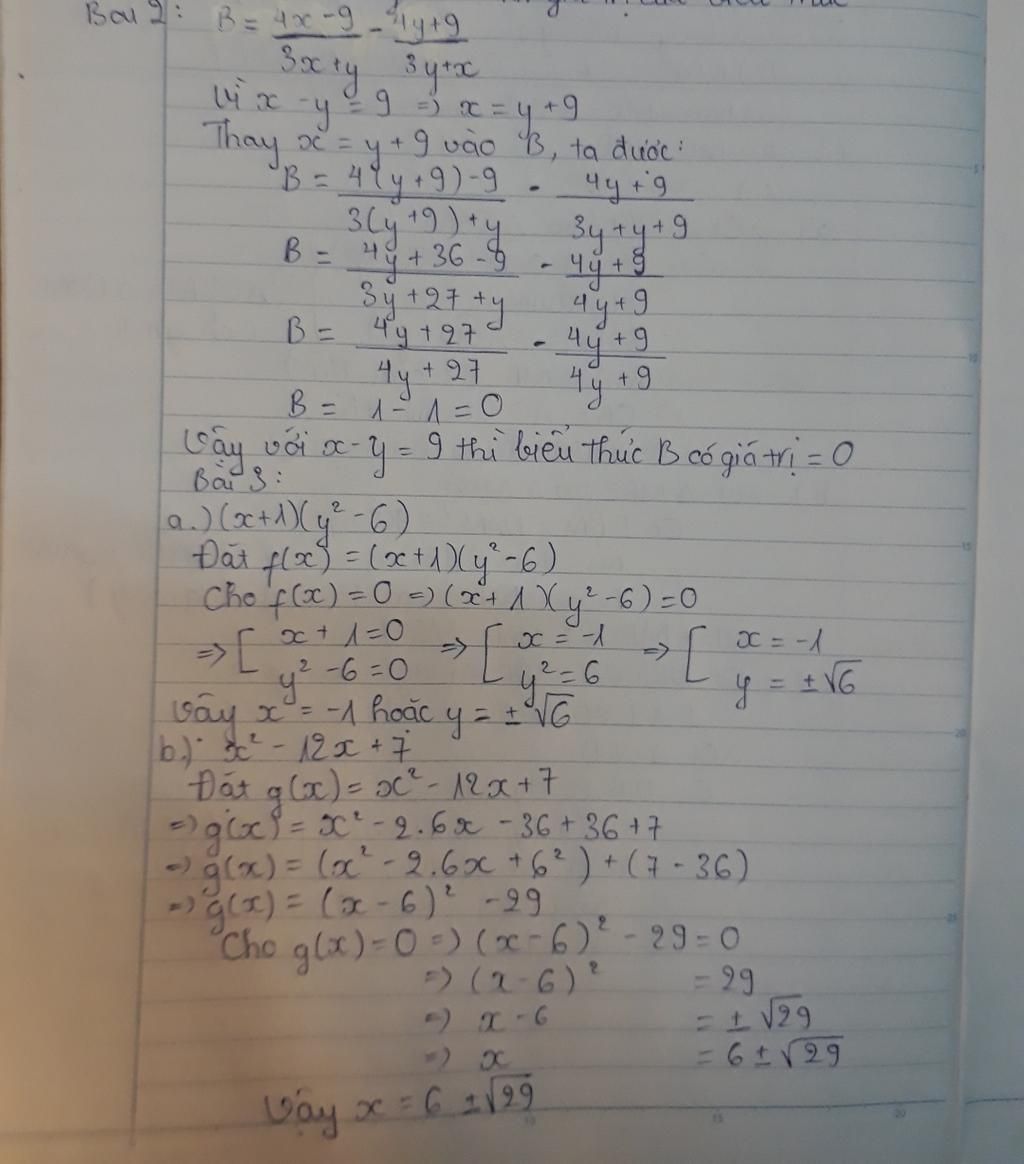 Bài 2: B = \frac{4x-9}{3x+y} - \frac{4y+9}{3y+x}
Vì x - y = 9 => x = y + 9
Thay x = y + 9 vào B, ta được:
B = \frac{4(y+9)-9}{3(y+9)+y} - \frac{4y+9}{3y+y+9}
B = \frac{4y+36-9}{3y+27+y} - \frac{4y+9}{4y+9}
B = \frac{4y+27}{4y+27} - \frac{4y+9}{4y+9}
B = 1 - 1 = 0
Vậy với x - y = 9 thì biểu thức B có giá trị = 0
Bài 3:
a.) (x+1)(y² - 6)
Đặt f(x) = (x+1)(y² - 6)
Cho f(x) = 0 => (x+1)(y² - 6) = 0
=> [ x + 1 = 0 => [ x = -1 => [ x = -1
y² - 6 = 0 y² = 6 y = ±√6
Vậy x = -1 hoặc y = ±√6
b.) x² - 12x + 7
Đặt g(x) = x² - 12x + 7
=> g(x) = x² - 2.6x - 36 + 36 + 7
=> g(x) = (x² - 2.6x + 6²) + (7 - 36)
=> g(x) = (x - 6)² - 29
Cho g(x) = 0 => (x - 6)² - 29 = 0
=> (x - 6)² = 29
=> x - 6 = ±√29
=> x = 6 ± √29
Vậy x = 6 ± √29